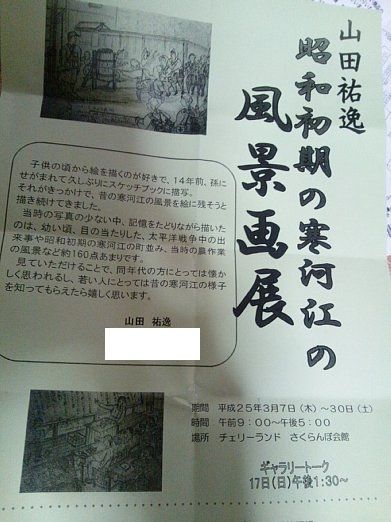 山田祐逸
昭和初期の寒河江の
風景画展
子供の頃から絵を描くのが好きで、14年前、孫に
せがまれて久しぶりにスケッチブックに描写。
それがきっかけで、昔の寒河江の風景を絵に残そうと
描き続けてきました。
当時の写真の少ない中、記憶をたどりながら描いた
のは、幼い頃、目の当たりした、太平洋戦争中の出
来事や昭和初期の寒河江の町並み、当時の農作業
の風景など約160点あまりです。
見ていただけることで、同年代の方にとっては懐か
しく思われるし、若い人にとっては昔の寒河江の様子
を知ってもらえたら嬉しく思います。
山田 祐逸
期間 平成25年3月7日(木)~30日(土)
時間 午前9:00~午後5:00
場所 チェリーランド さくらんぼ会館
ギャラリートーク
17日(日)午後1:30~